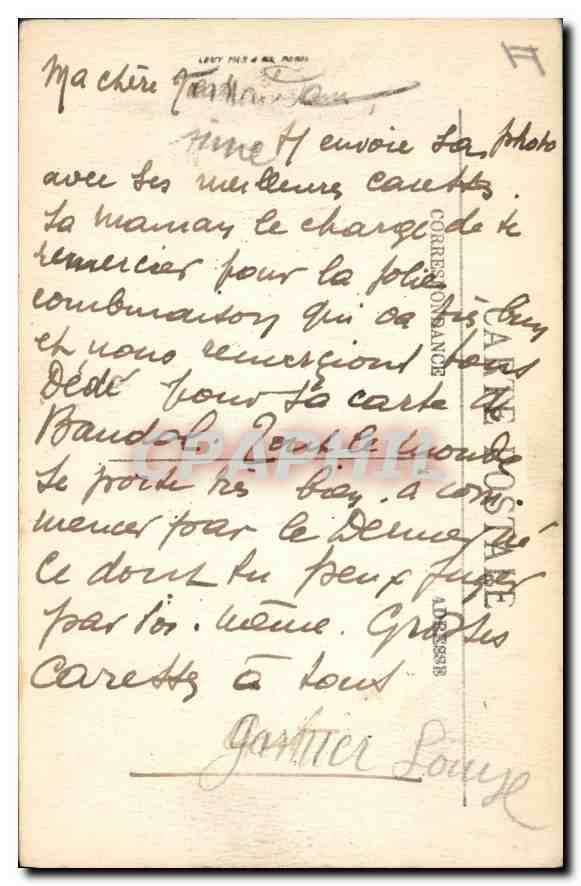 Ma chère
t'envoie sa photo
avec ses meilleures caresses.
Sa maman le charge de te
remercier pour la jolie
combinaison qui va très bien
et nous remercions tous
Dédé pour sa carte de
Bandol. Tout le monde
se porte très bien. à com
mencer par le Dernier né
Ce dont tu peux juger
par toi. même. Grosses
caresses à tous
Louise
CARTE POSTALE
CORRESPONDANCE
ADRESSE
CPAPHIL